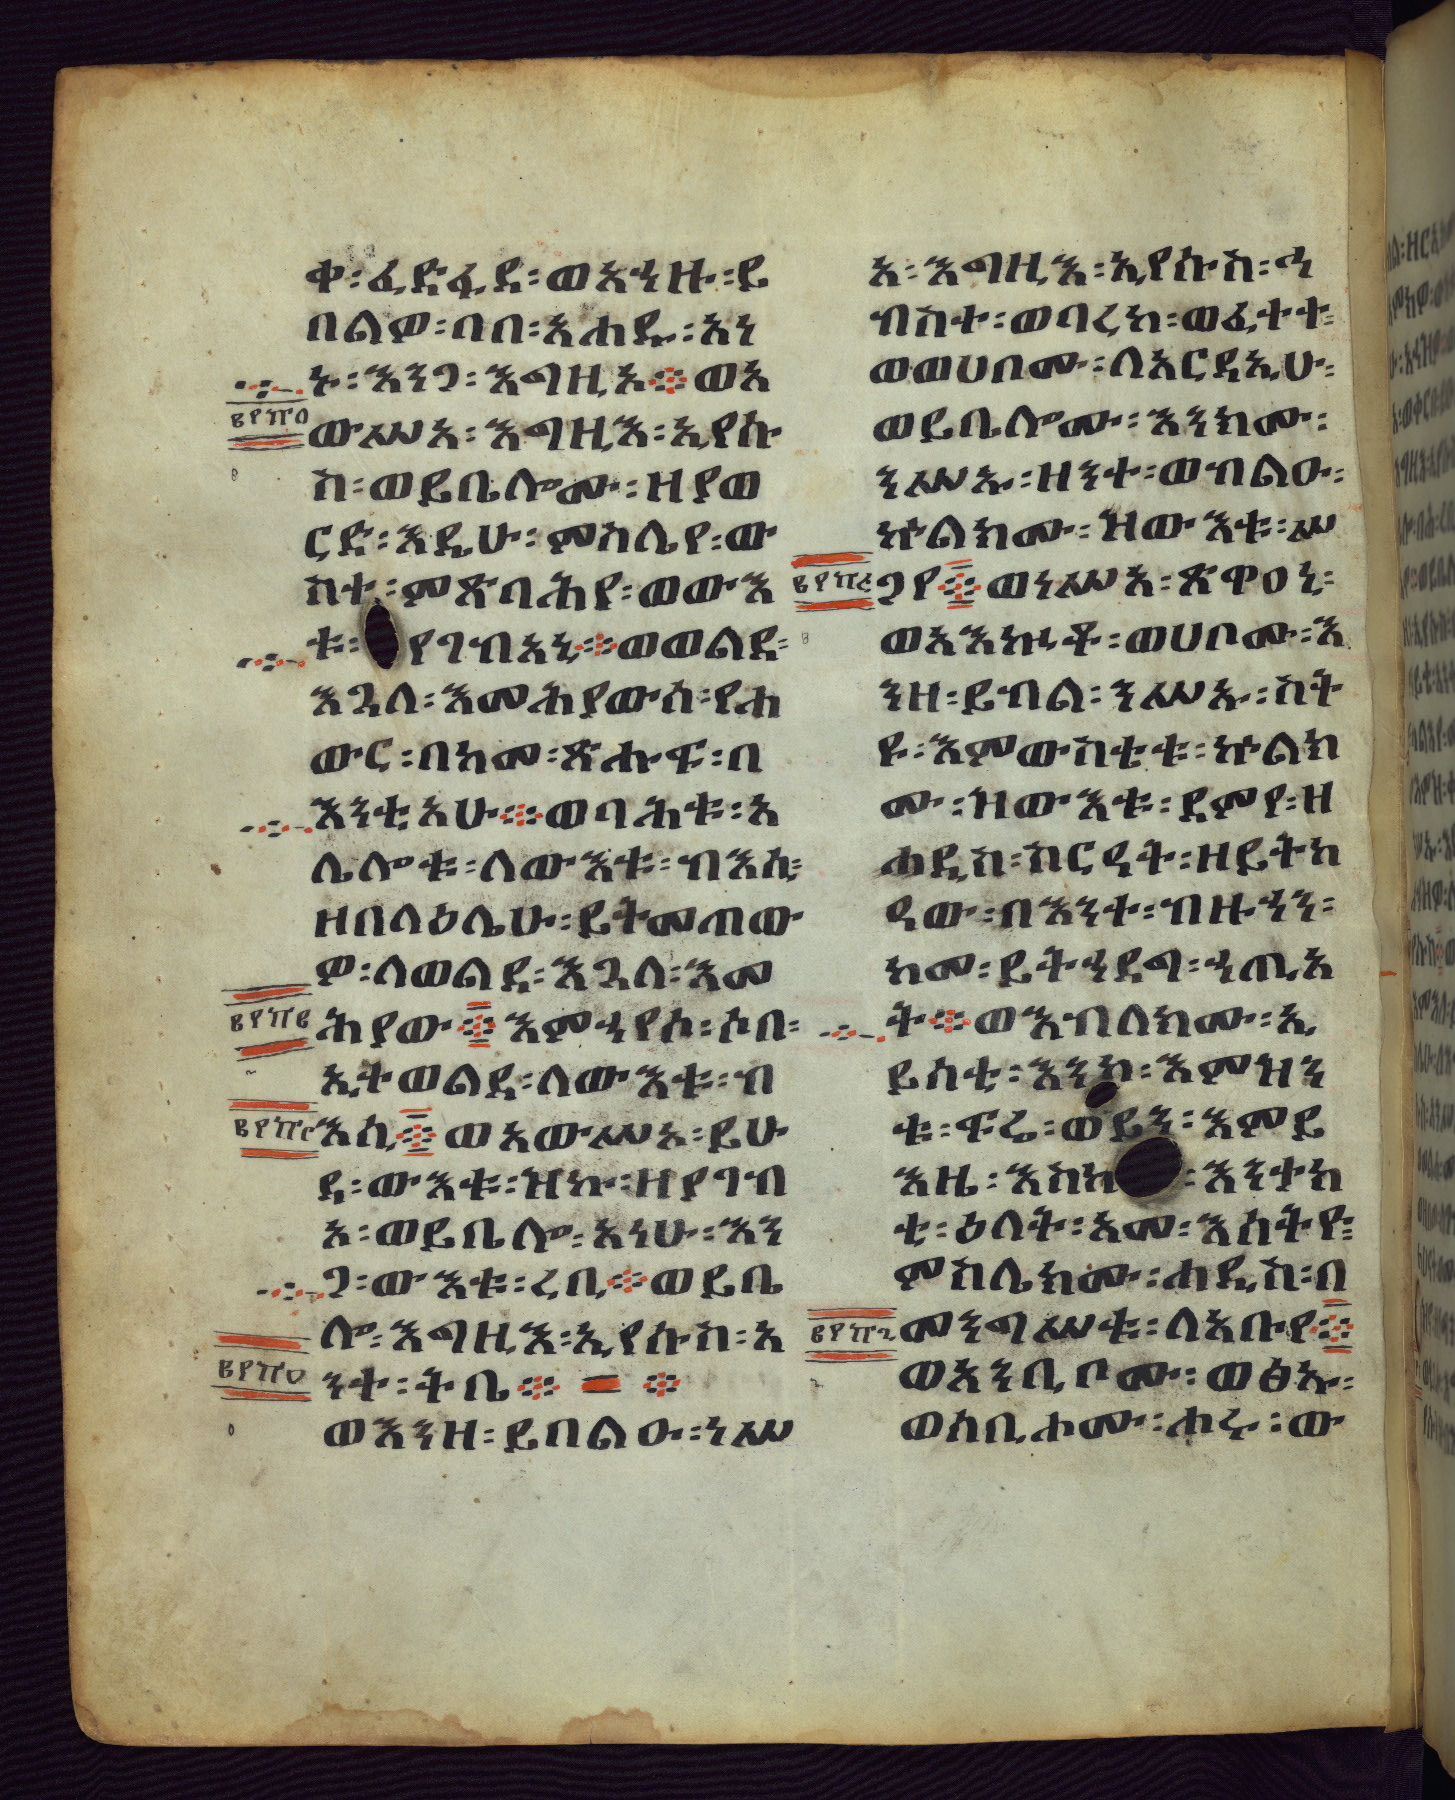 ቀ፡ፈድፋደ፡ወአኀዙ፡ይ
በልዎ፡በበ፡አሐዱ፡እን
ኑ፡እንጋ፡እግዚኦ፨ወአ
ውሥአ፡እግዚእ፡ኢየሱ
ስ፡ወይቤሎሙ፡ዘያወ
ርድ፡እዴሁ፡ምስሌየ፡ው
ስተ፡መጽባሕየ፡ወውእ
ቱ፡ያገብአኒ፨ወወልደ፡
እጓለ፡እመሕያውስ፡የሐ
ውር፡በከመ፡ጽሑፍ፡በ
እንቲአሁ፨ወባሕቱ፡አ
ሌሎቱ፡ለውእቱ፡ብእሲ፡
ዘበላዕሌሁ፡ይትመጠው
ዎ፡ለወልደ፡እጓለ፡እመ
ሕያው፨እምኀየሶ፡ሶበ፡
ኢተወልደ፡ለውእቱ፡ብ
እሲ፨ወአውሥአ፡ይሁ
ዳ፡ውእቱ፡ዝኩ፡ዘያገብ
ኦ፡ወይቤሎ፡አነሁ፡እን
ጋ፡ውእቱ፡ረቢ፨ወይቤ
ሎ፡እግዚእ፡ኢየሱስ፡አ
ንተ፡ትቤ፨ ፨
ወእንዘ፡ይበልዑ፡ነሥ
አ፡እግዚእ፡ኢየሱስ፡ኅ
ብስተ፡ወባረከ፡ወፈተተ፡
ወወሀቦሙ፡ለአርዳኢሁ፡
ወይቤሎሙ፡እንከሙ፡
ንሥኡ፡ዘንተ፡ወብልዑ፡
ኵልክሙ፡ዝውእቱ፡ሥ
ጋየ፨ወነሥአ፡ጽዋዐኒ፡
ወአእኰቶ፡ወሀቦሙ፡እ
ንዘ፡ይብል፡ንሥኡ፡ስት
ዩ፡እምውስቴቱ፡ኵልክ
ሙ፡ዝውእቱ፡ደምየ፡ዘ
ሐዲስ፡ሥርዓት፡ዘይትከ
ዓው፡በእንተ፡ብዙኀን፡
ከመ፡ይትኀደግ፡ኀጢአ
ት፨ወእብለክሙ፡ኢ
ይሰቲ፡እንከ፡እምዝን
ቱ፡ፍሬ፡ወይን፡እምይ
እዜ፡እስከ፡እንተክ
ቲ፡ዕለት፡አመ፡እሰትዮ፡
ምስሌክሙ፡ሐዲሰ፡በ
መንግሥቱ፡ለአቡየ፨
ወአንቢቦሙ፡ወፅኡ፡
ወሰቢሖሙ፡ሖሩ፡ው